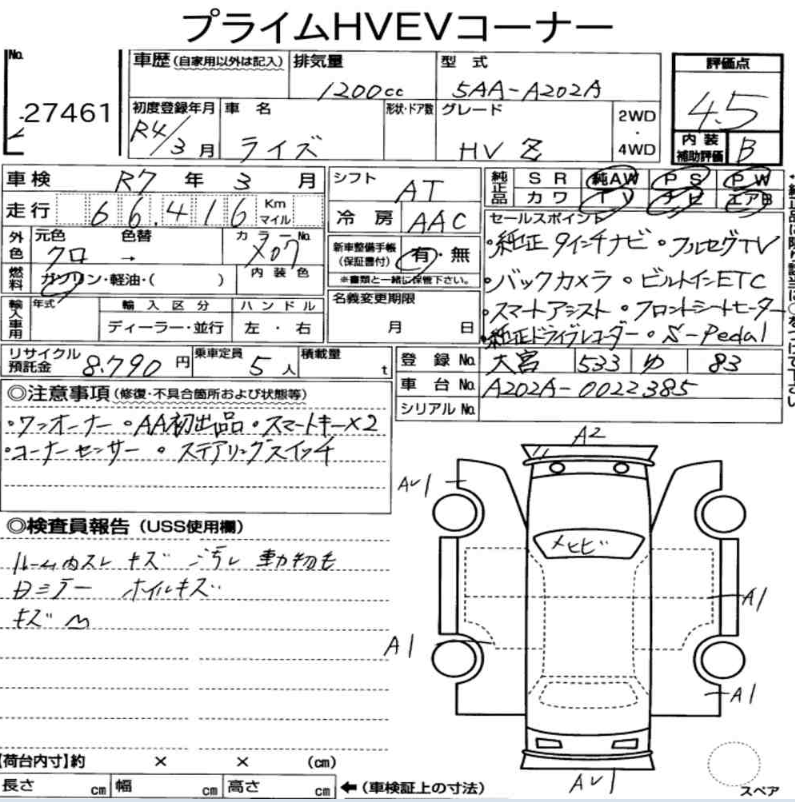 プライムHVEVコーナー
No. 27461
車歴(自家用以外は記入) 排気量 1200cc 型式 5AA-A202A 評価点 4.5
初度登録年月 R4/3月 車名 ライズ 形状・ドア数 グレード HV Z 2WD・4WD 内装補助評価 B
車検 R7年3月 シフト AT 純正品 SR 純AW PS PW
走行 66,416 Km マイル 冷房 AAC カワ TV ナビ エアB
外色 元色 クロ 色替 → カラーNo. X07 新車整備手帳(保証書付) 有・無 セールスポイント
※書類と一緒に保管下さい。
燃料 ガソリン・軽油・( ) 内装色
・純正9インチナビ・フルセグTV
・バックカメラ・ビルトインETC
・スマートアシスト・フロントシートヒーター
・純正ドライブレコーダー・S-Pedal
輸入車用 年式 輸入区分 ハンドル 名義変更期限
ディーラー・並行 左・右 月 日
リサイクル預託金 8,790円 乗車定員 5人 積載量 t 登録No. 大宮 533 ゆ 83
車台No. A202A-0022385
シリアルNo.
◎注意事項(修復・不具合箇所および状態等)
・ワンオーナー・AA初出品・スマートキー×2
・コーナーセンサー・ステアリングスイッチ
◎検査員報告(USS使用欄)
ルーム内スレ キズ 汚レ 動物毛
ホイルキズ
キズ
A2
A1
A1
A1
【荷台内寸】約 × × (cm)
長さ cm 幅 cm 高さ cm ←(車検証上の寸法)
スペア